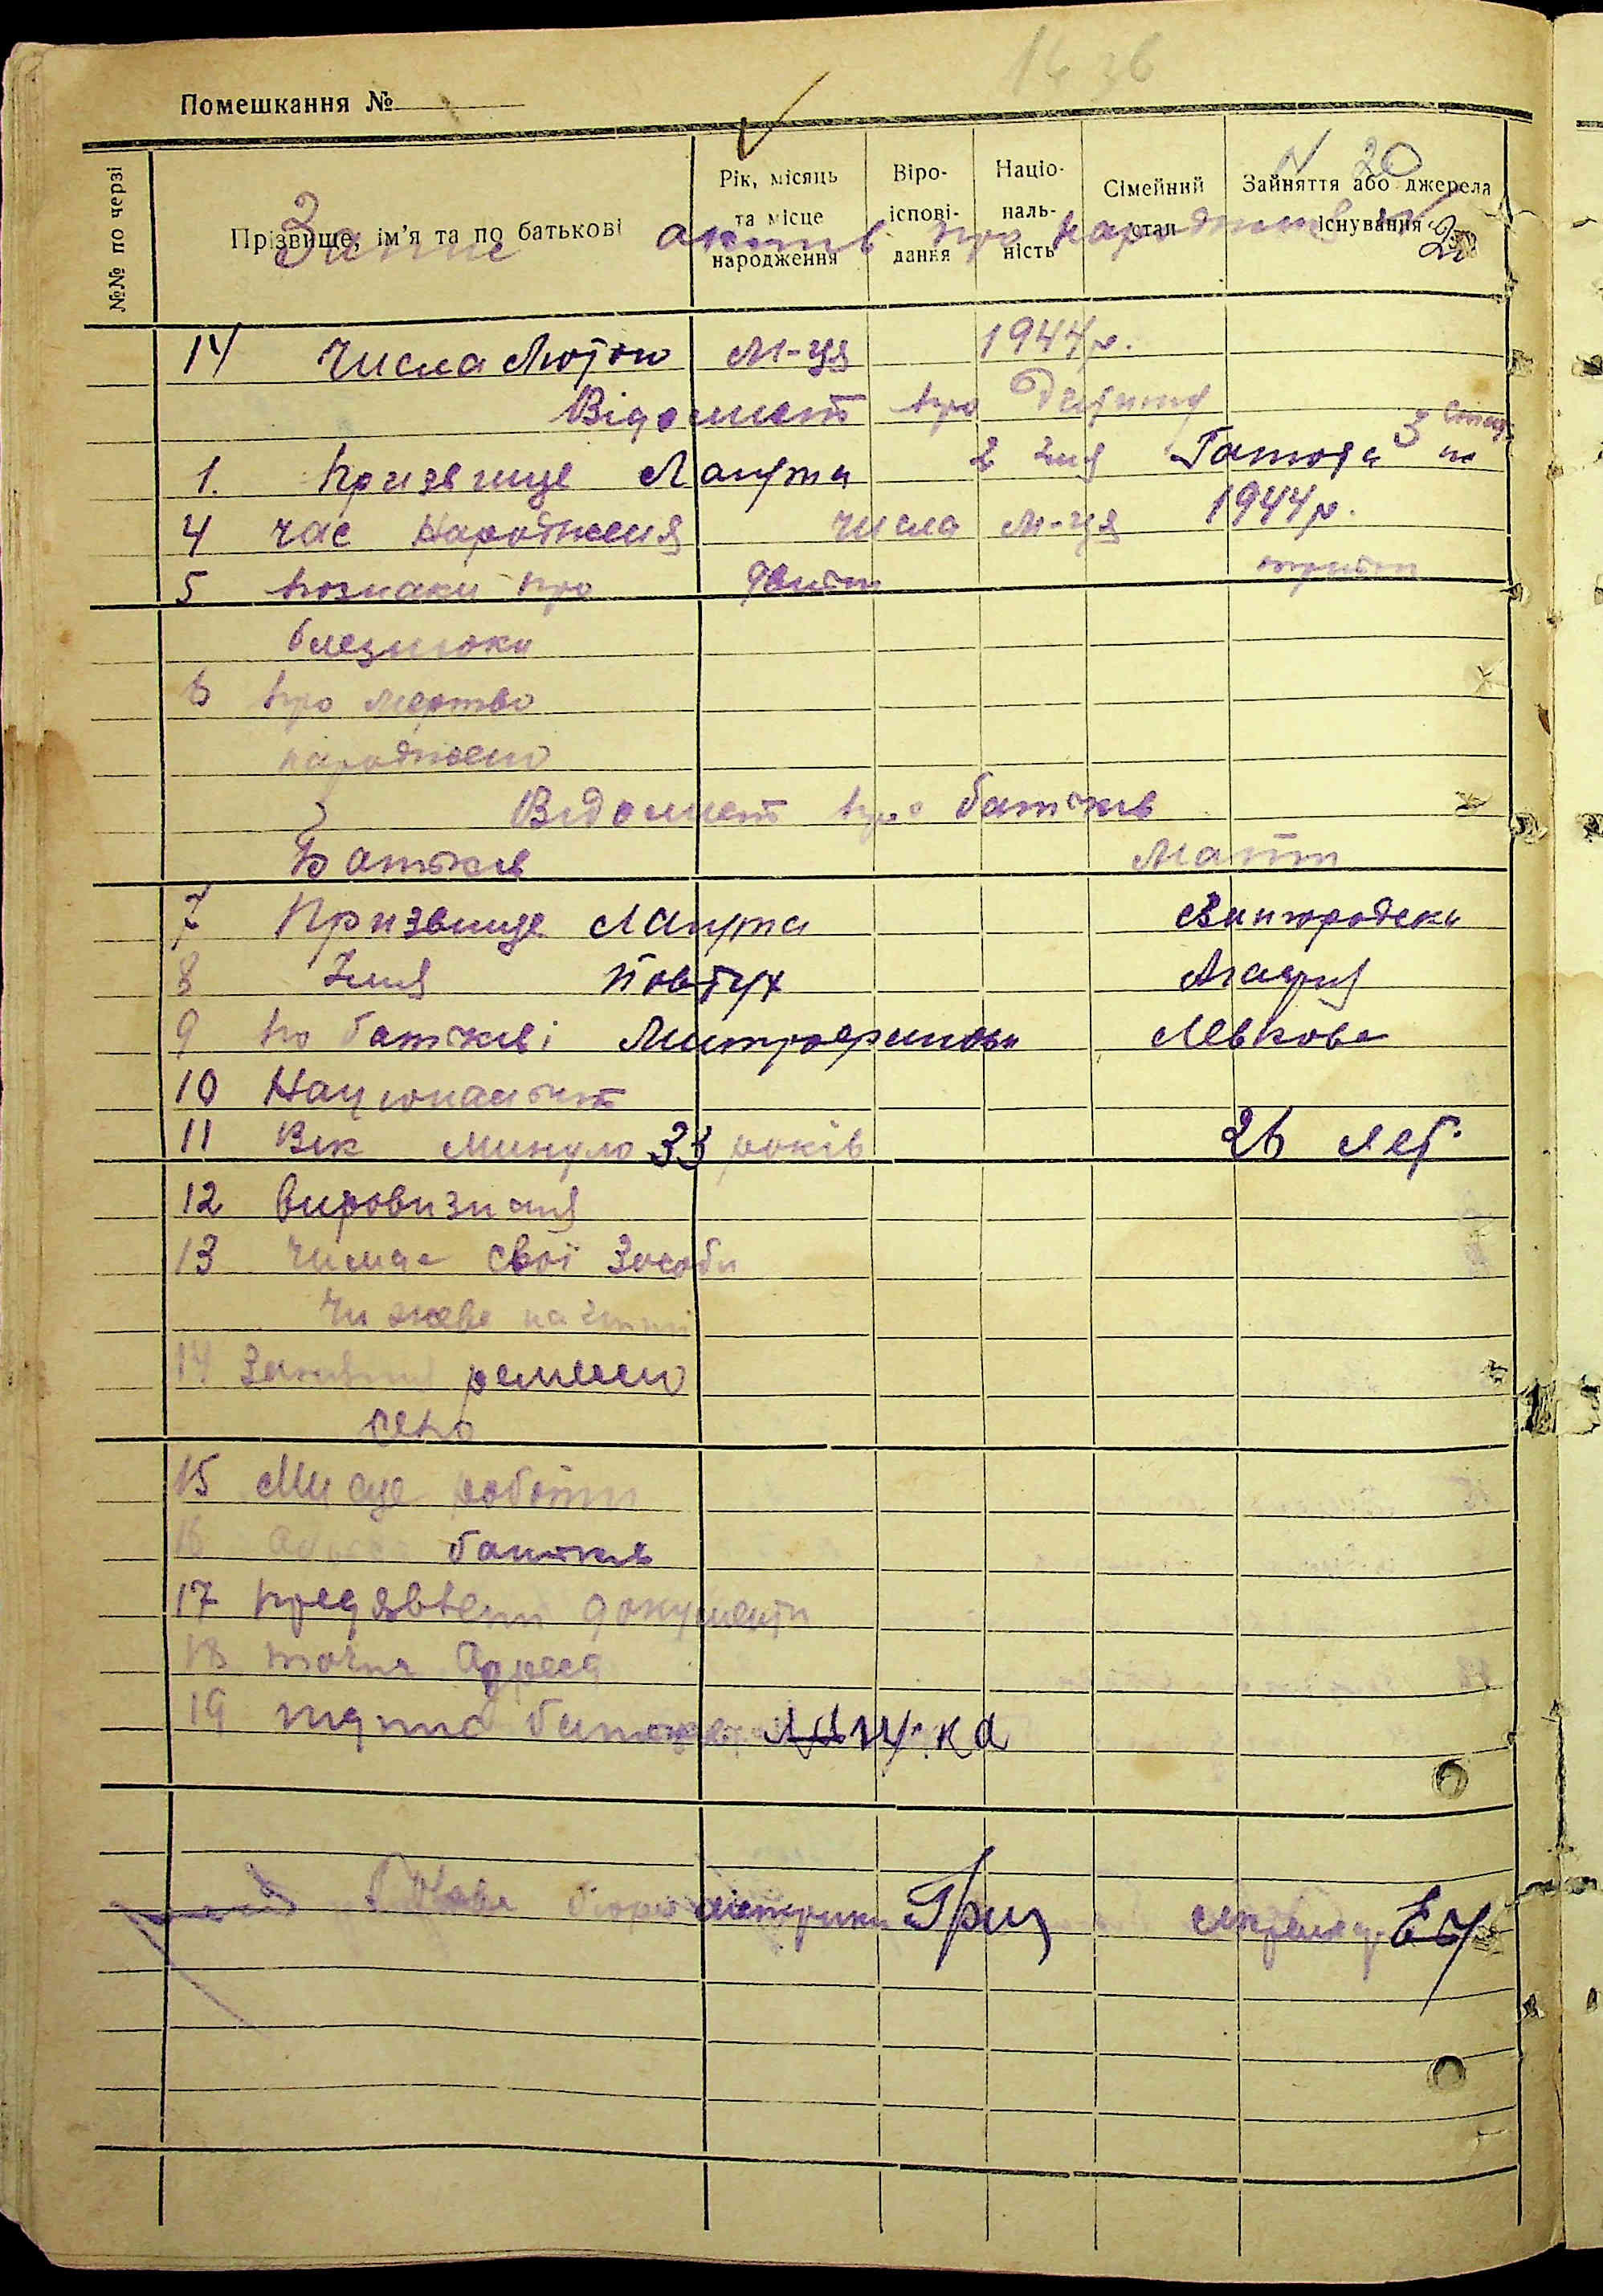 14 зв
Помешкання №
N 20
№№ по черзі
Прізвище, ім’я та по батькові
Рік, місяць та місце народження
Віро-іспові-дання
Націо-наль-ність
Сімейний стан
Зайняття або джерела існування
Запис актів про народження № 20
14 числа Лютого м-ця 1944 р.
Відомості про дитину
1. Призвище Лащта 2 Імя 3 Стать
4 час Народження числа м-ця 1944 р.
5 познаки про двійні трійні
близнюки
6 про мертво
народжено
Відомості про батьків
Батьків Матіри
7 Призвище Лащта Звингородска
8 Імя Повтух
9 по батькові Митрофанови Левкова
10 Національність
11 Вік минуло 33 років 26 лет
12 Віровизнаня
13 Чи має свої засоби
Чи живе на
14 ремесло
15 Мисце роботи
16 батьків
17 предявлені документи
18 точна Адреса
19 підпис
бюро Гриц секретар